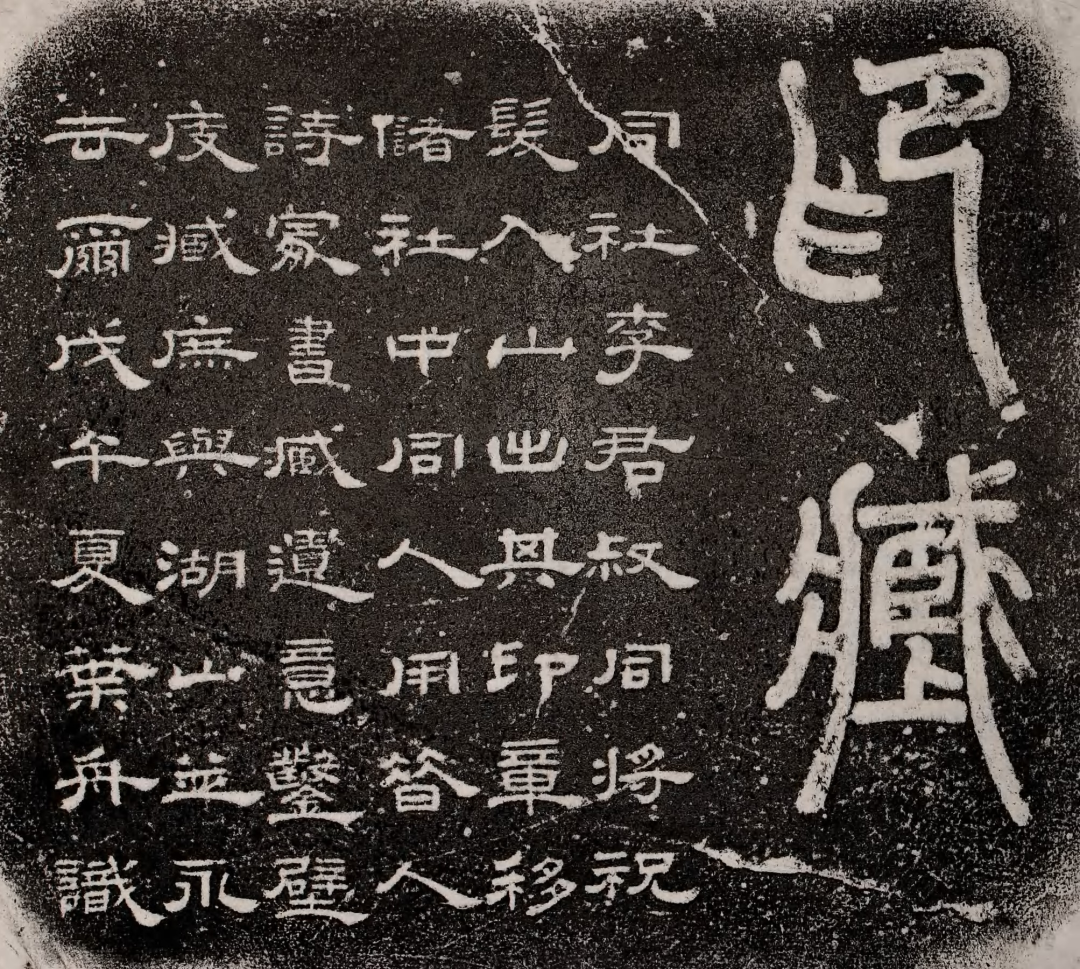 印藏
同社李君叔同將祝
髮入山出其印章移
儲社中同人用昔人
詩家書藏遺意鑿壁
庋藏庶與湖山並永
云爾戊午夏葉舟識